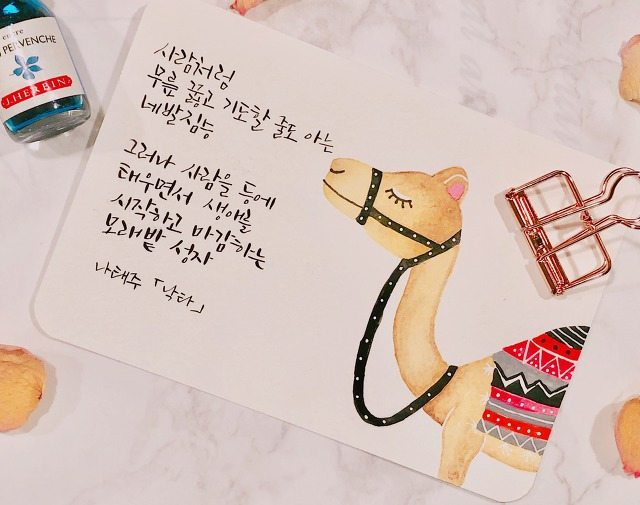 encre
PERVENCHE
J.HERBIN
사람처럼
무릎 꿇고 기도할 줄도 아는
네발짐승
그러나 사람을 등에
태우면서 생애를
시작하고 마감하는
모래밭 성자
나태주 「낙타」